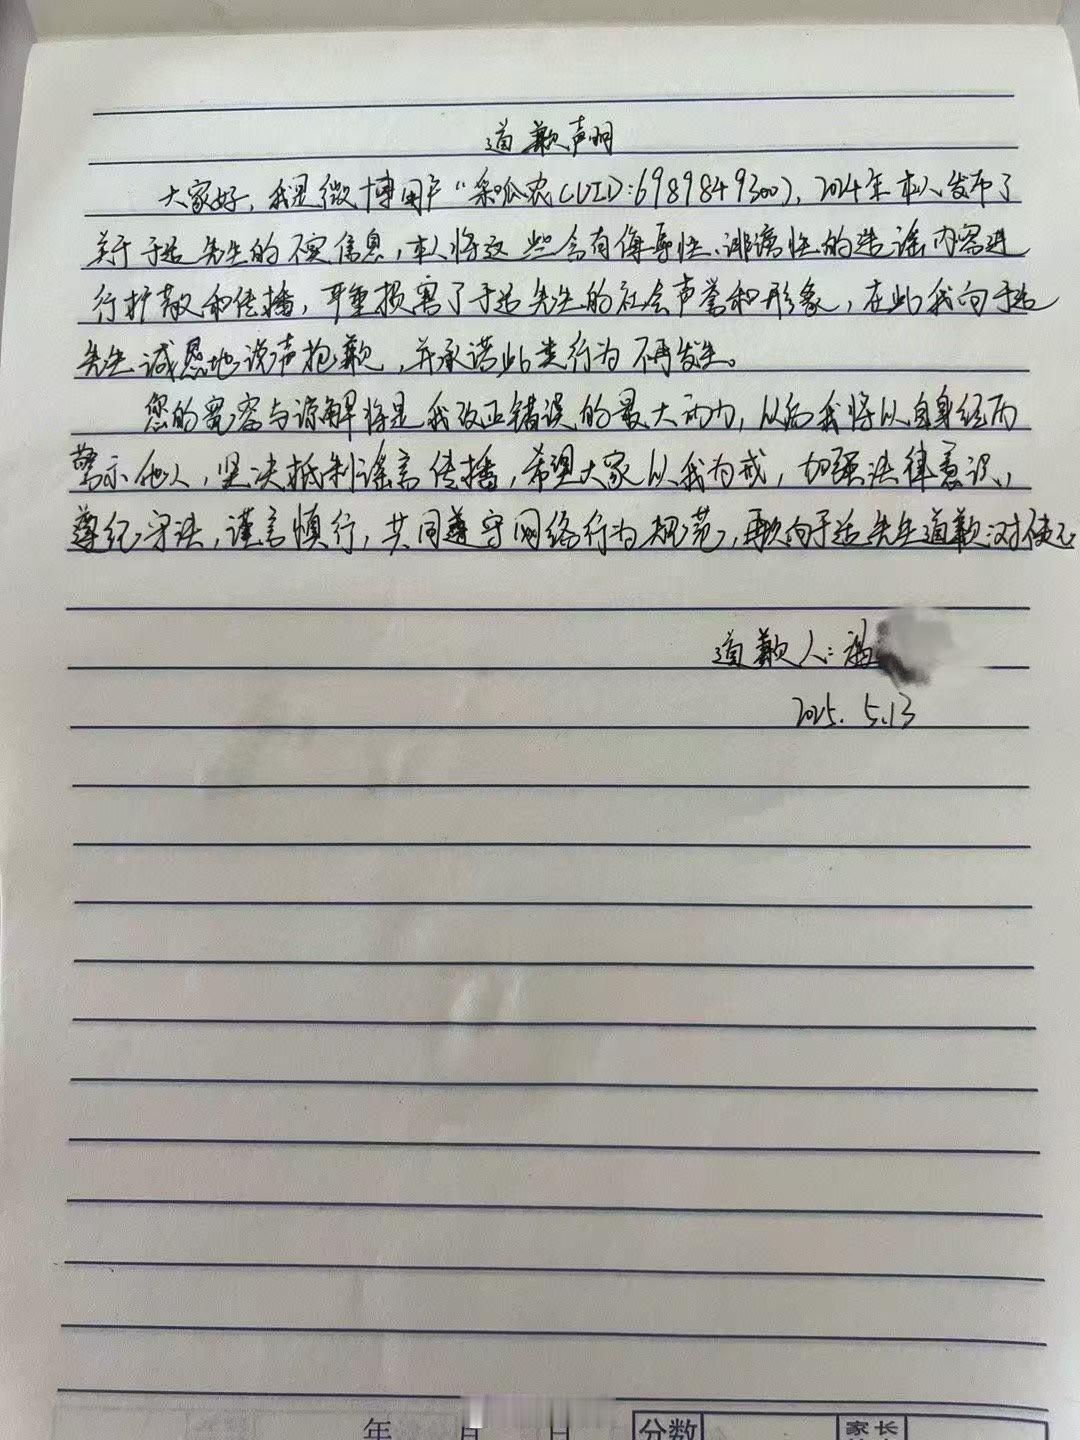 道歉声明
大家好,我是微博用户"采呱农(UID:6989849300),2024年本人发布了
关于于适先生的不实信息,本人将这些含有侮辱性、诽谤性的造谣内容进
行扩散和传播,严重损害了于适先生的社会声誉和形象,在此我向于适
先生诚恳地说声抱歉,并承诺此类行为不再发生。
您的宽容与谅解将是我改正错误的最大动力,以后我将以自身经历
警示他人,坚决抵制谣言传播,希望大家以我为戒,加强法律意识,
尊纪守法,谨言慎行,共同遵守网络行为规范,再次向于适先生道歉:对使不
道歉人:
2025.5.13
年 月 日 分数 家长